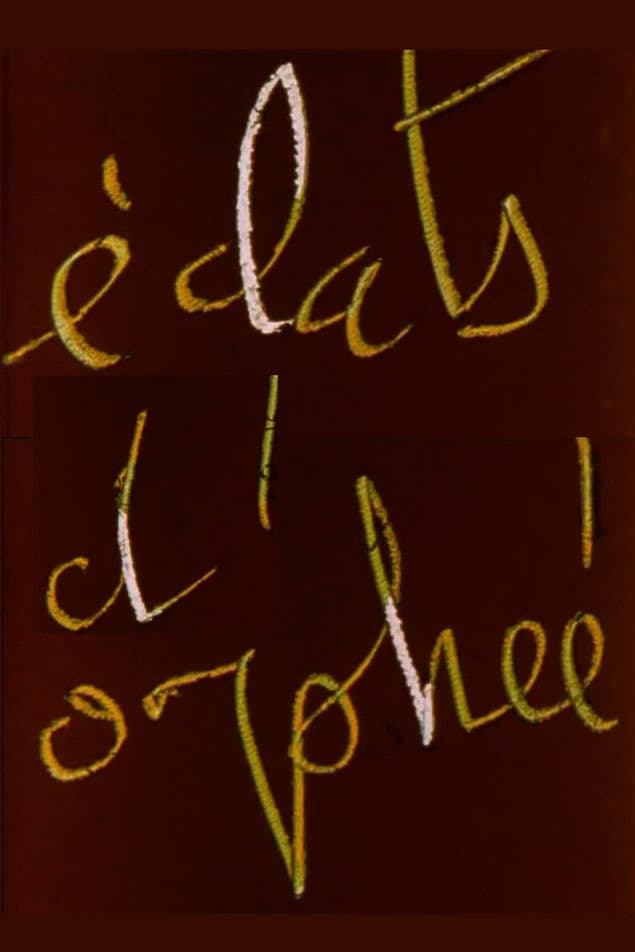 éclats
d'
orpheé